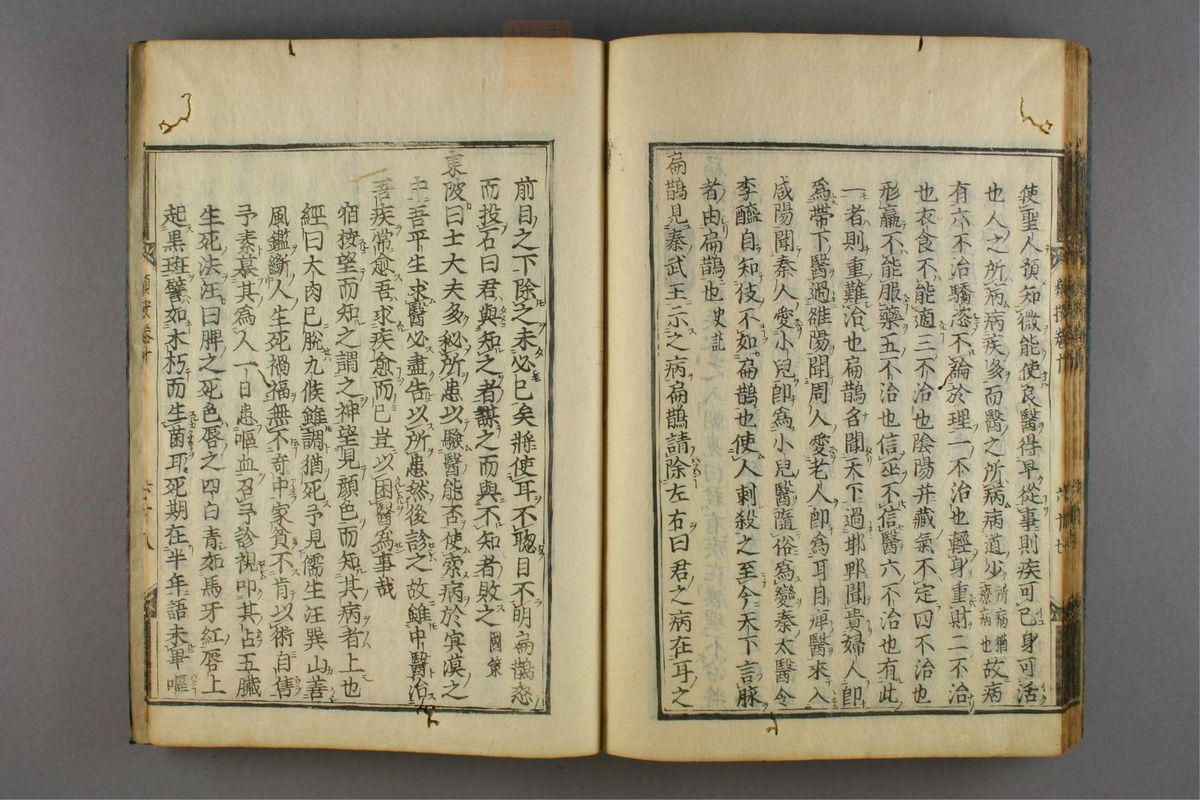 使聖人預知微能使良醫得早從事則疾可已身可活
也人之所病病疾多而醫之所病病道少所病猶療病也故病
有六不治驕恣不論於理一不治也輕身重財二不治
也衣食不能適三不治也陰陽并藏氣不定四不治也
形羸不能服藥五不治也信巫不信醫六不治也有此
一者則重難治也扁鵲名聞天下過邯鄲聞貴婦人即
為帶下醫過雒陽聞周人愛老人即為耳目痺醫來入
咸陽聞秦人愛小兒即為小兒醫隨俗為變秦太醫令
李醯自知伎不如扁鵲也使人刺殺之至今天下言脉
者由扁鵲也史記
扁鵲見秦武王示之病扁鵲請除左右曰君之病在耳之
前目之下除之未必已矣將使耳不聰目不明扁鵲怒
而投石曰君與知之者謀之而與不知者敗之國策
東陂曰士大夫多秘所患以驗醫能否使索病於冥漠之
中吾平生求醫必盡告以所患然後診之故雖中醫治
吾疾常愈吾求疾愈而已豈以困醫為事哉
宿按望而知之謂之神望見顏色而知其病者上也
經曰大肉已脫九候雖調猶死予見儒生汪巽山善
風鑑斷人生死禍福無不奇中家貧不肯以術自售
予素慕其為人一日患嘔血召予診視叩其占五臟
生死法汪曰脾之死色唇之四白青如馬牙紅唇上
起黑斑譬如木朽而生菌耳死期在半年語未畢嘔
類按卷十
六十八